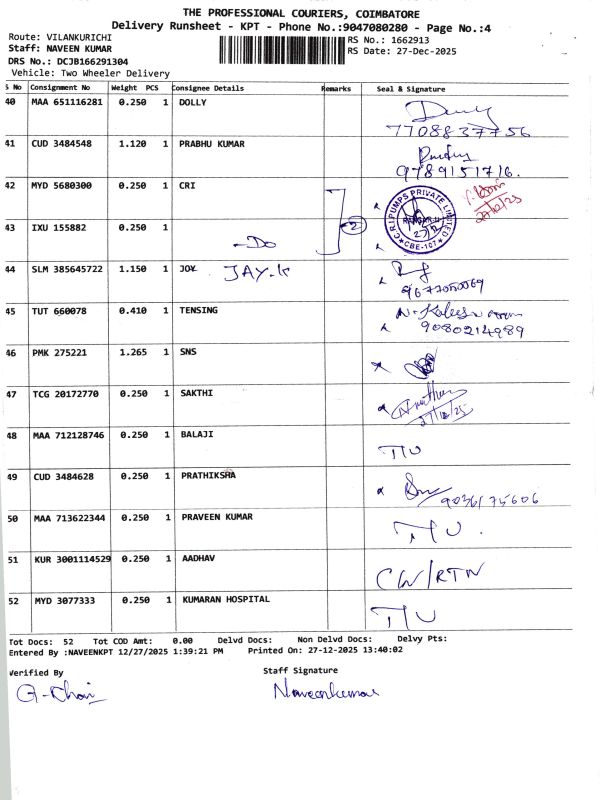 THE PROFESSIONAL COURIERS, COIMBATORE
Delivery Runsheet - KPT - Phone No.:9047080280 - Page No.:4
Route: VILANKURICHI
RS No.: 1662913
Staff: NAVEEN KUMAR
RS Date: 27-Dec-2025
DRS No.: DCJB166291304
Vehicle: Two Wheeler Delivery
S No Consignment No Weight PCS Consignee Details Remarks Seal & Signature
40 MAA 651116281 0.250 1 DOLLY
7708837756
41 CUD 3484548 1.120 1 PRABHU KUMAR
9789151716.
42 MYD 5680300 0.250 1 CRI
C.R.I PUMPS PRIVATE LIMITED
CBE-107
43 IXU 155882 0.250 1
-Do 2
44 SLM 385645722 1.150 1 JOY JAY.K
9677050069
45 TUT 660078 0.410 1 TENSING
9080214989
46 PMK 275221 1.265 1 SNS
47 TCG 20172770 0.250 1 SAKTHI
27/12/25
48 MAA 712128746 0.250 1 BALAJI
T/U
49 CUD 3484628 0.250 1 PRATHIKSHA
9036175606
50 MAA 713622344 0.250 1 PRAVEEN KUMAR
T/U.
51 KUR 3001114529 0.250 1 AADHAV
CN/RTN
52 MYD 3077333 0.250 1 KUMARAN HOSPITAL
T/U
Tot Docs: 52 Tot COD Amt: 0.00 Delvd Docs: Non Delvd Docs: Delvy Pts:
Entered By :NAVEENKPT 12/27/2025 1:39:21 PM Printed On: 27-12-2025 13:40:02
Verified By
Staff Signature
Naveenkumar